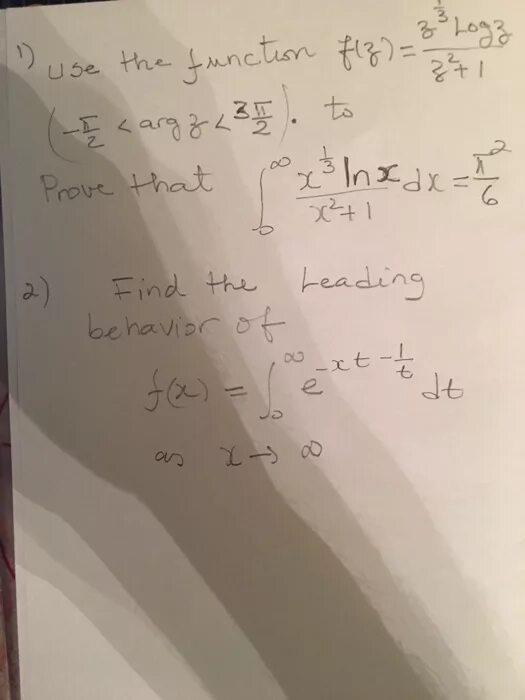 1) Use the function f(z) = z^{1/3} Log z / z^2+1
(-π/2 < arg z < 3π/2). to
Prove that ∫_0^∞ x^{1/3} ln x / x^2+1 dx = π^2/6
2) Find the Leading
behavior of
f(x) = ∫_0^∞ e^{-xt - 1/t} dt
as x → ∞